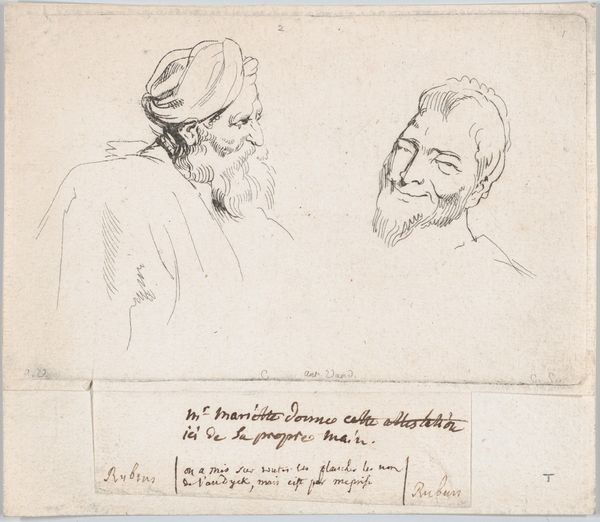 2
1
A. V.
C
ant Vand.
mr Mariette donne cette attestation
ici de sa propre main.
on a mis sur toutes les planches le nom
de Vandyck, mais c'est par meprise
Rubens
Rubens
T